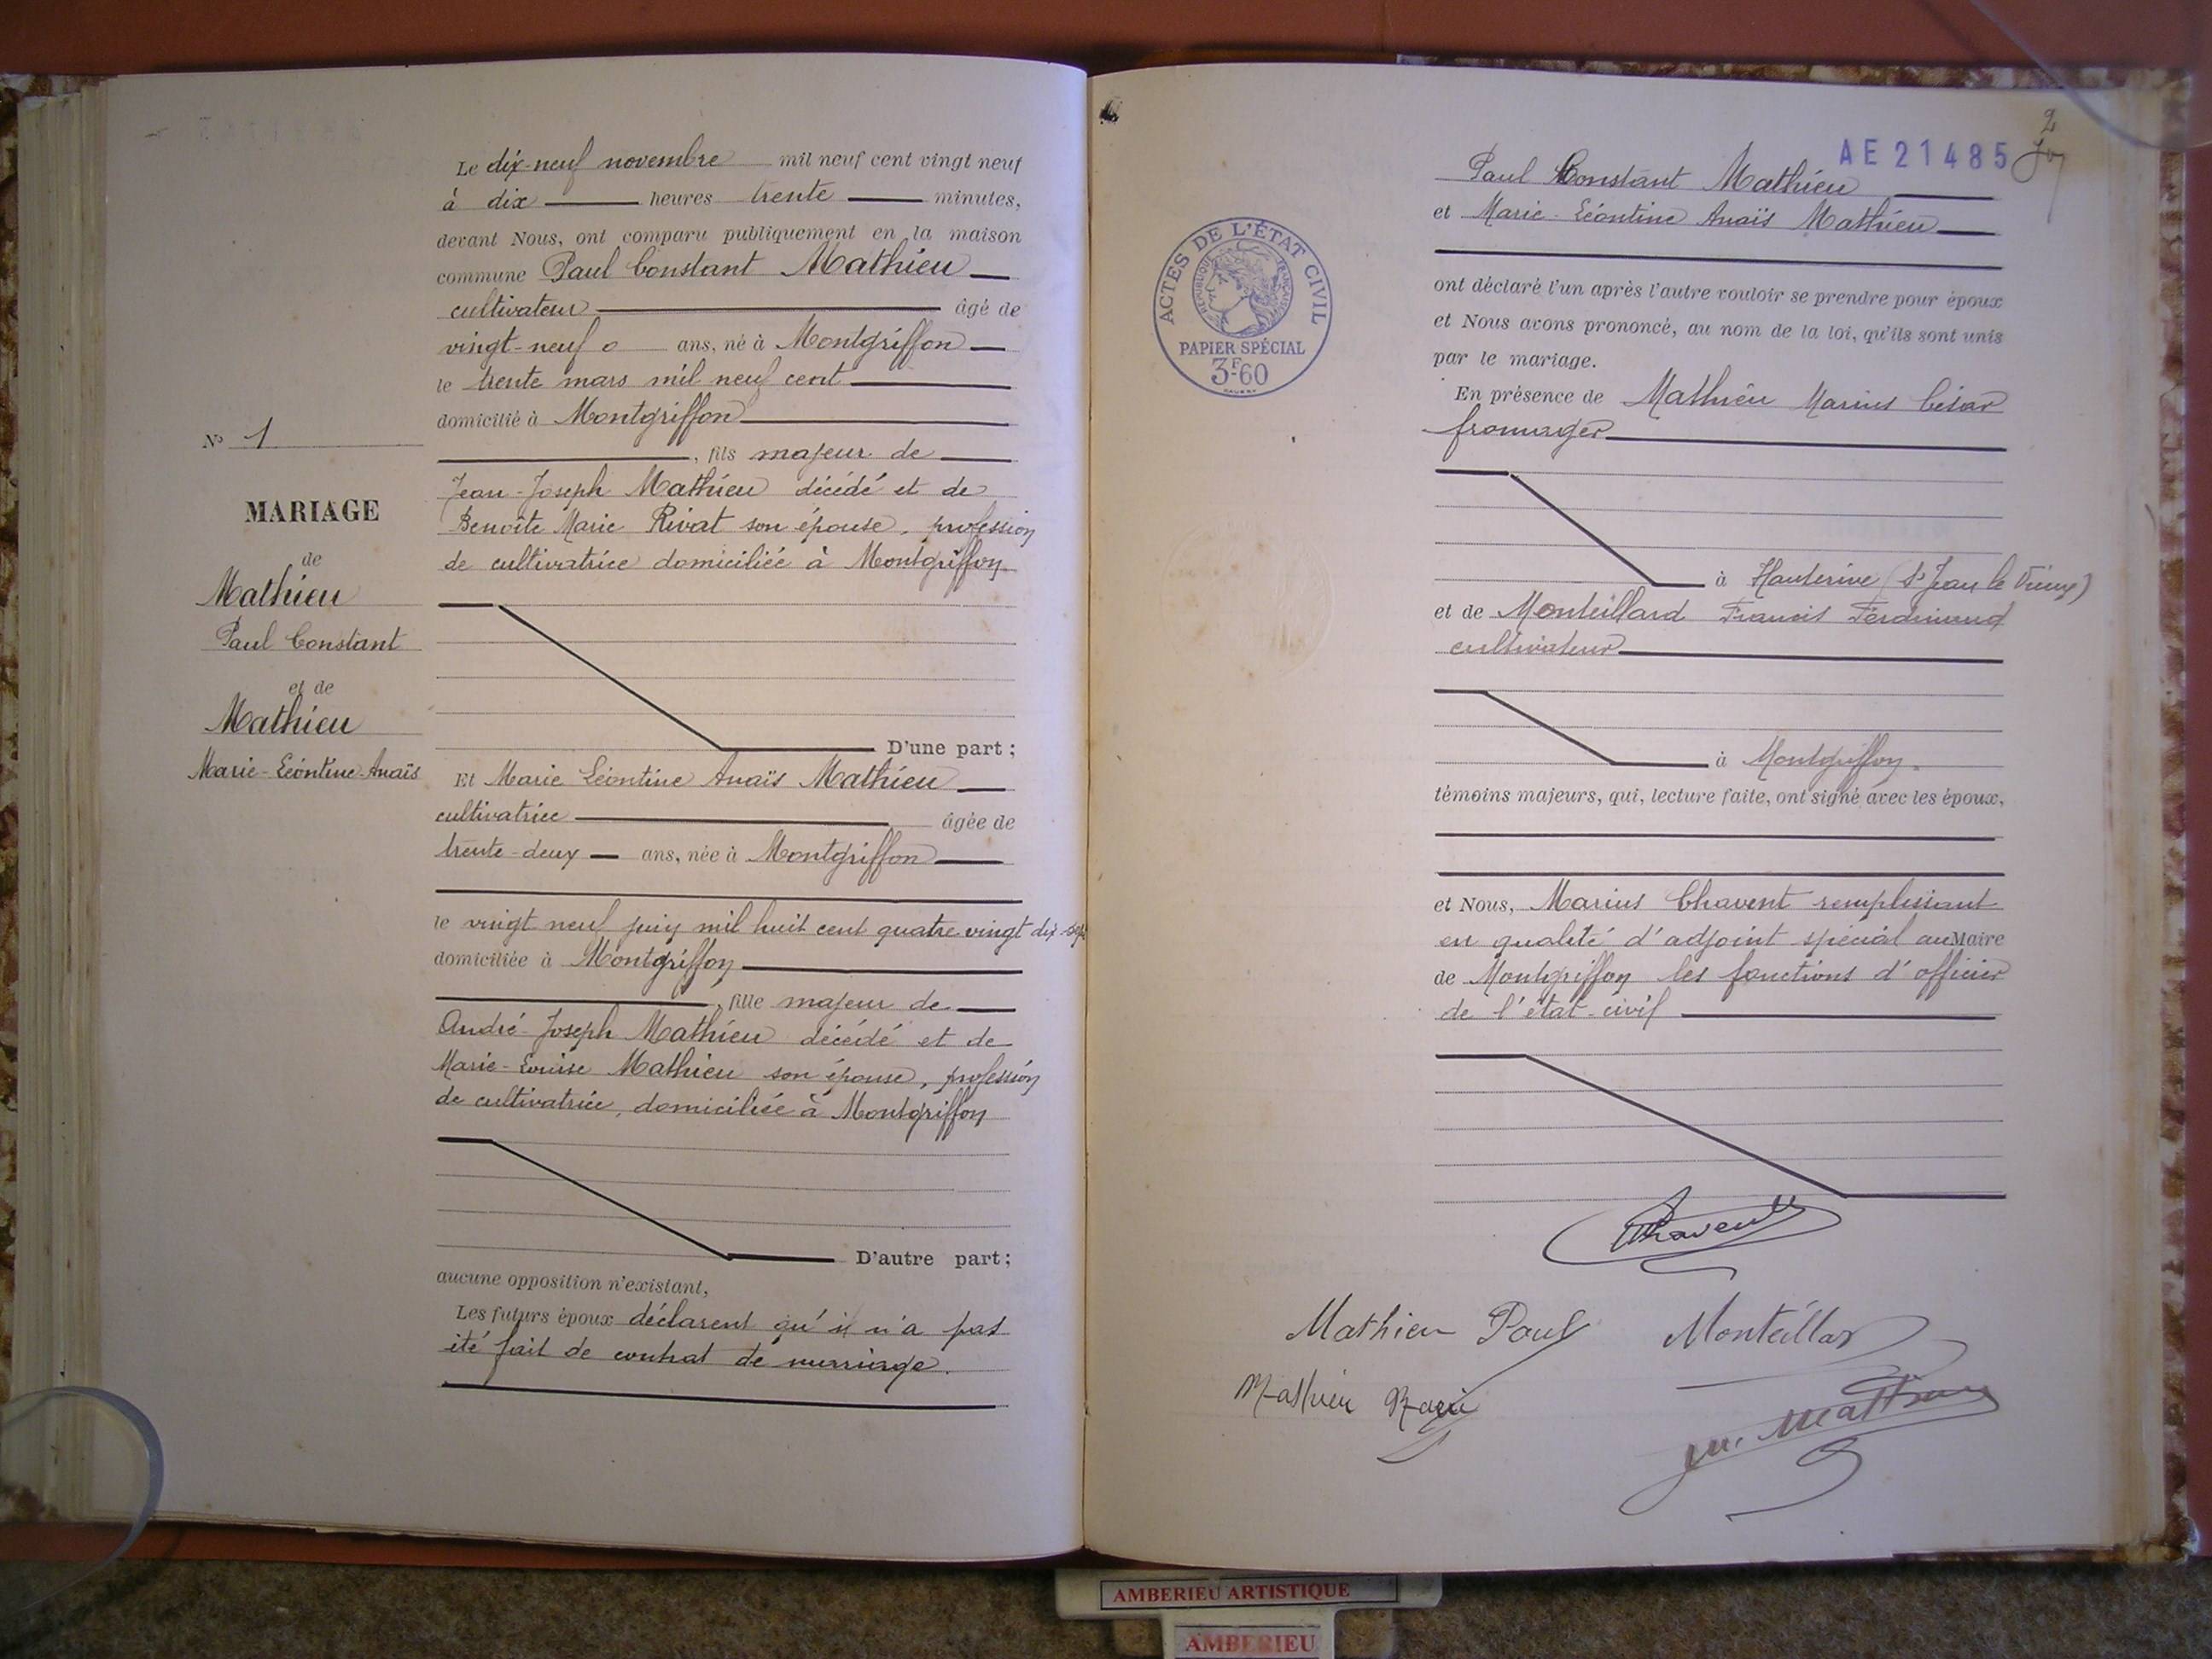 Le dix-neuf novembre mil neuf cent vingt neuf
à dix heures trente minutes,
devant Nous, ont comparu publiquement en la maison
commune Paul Constant Mathieu
cultivateur âgé de
vingt-neuf ans, né à Montgriffon
le trente mars mil neuf cent
domicilié à Montgriffon
, fils majeur de
Jean-Joseph Mathieu décédé et de
Benoîte Marie Rivat son épouse, profession
de cultivatrice domiciliée à Montgriffon
D'une part;
Et Marie Léontine Anaïs Mathieu
cultivatrice âgée de
trente-deux ans, née à Montgriffon
le vingt neuf juin mil huit cent quatre vingt dix sept
domiciliée à Montgriffon
, fille majeur de
André-Joseph Mathieu décédé et de
Marie-Louise Mathieu son épouse, profession
de cultivatrice, domiciliée à Montgriffon
D'autre part;
aucune opposition n'existant,
Les futurs époux déclarent qu'il n'a pas
été fait de contrat de marriage.
N° 1
MARIAGE
de
Mathieu
Paul Constant
et de
Mathieu
Marie-Léontine-Anaïs
2
AE 21485
Paul Constant Mathieu
et Marie-Léontine Anaïs Mathieu
ont déclaré l'un après l'autre vouloir se prendre pour époux
et Nous avons prononcé, au nom de la loi, qu'ils sont unis
par le mariage.
En présence de Mathieu Marius César
fromager
à Hauterive (St Jean le Vieux)
et de Monteillard Francis Ferdinand
cultivateur
à Montgriffon.
témoins majeurs, qui, lecture faite, ont signé avec les époux,
et Nous, Marius Chavent remplissant
en qualité d'adjoint spécial au Maire
de Montgriffon les fonctions d'officier
de l'état-civil
Chavent
Mathieu Paul Monteillard
Mathieu
M. Mathieu
ACTES DE L'ÉTAT CIVIL
RÉPUBLIQUE FRANÇAISE
PAPIER SPÉCIAL
3F-60
AMBERIEU ARTISTIQUE
AMBERIEU